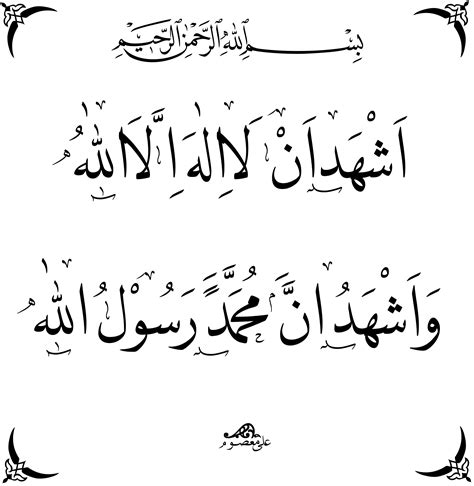 بِسْمِ اللهِ الرَّحْمٰنِ الرَّحِيْمِ
اَشْهَدُ اَنْ لَا اِلٰهَ اِلَّا اللهُ
وَ اَشْهَدُ اَنَّ مُحَمَّدًا رَسُوْلُ اللهِ
علی معصوم